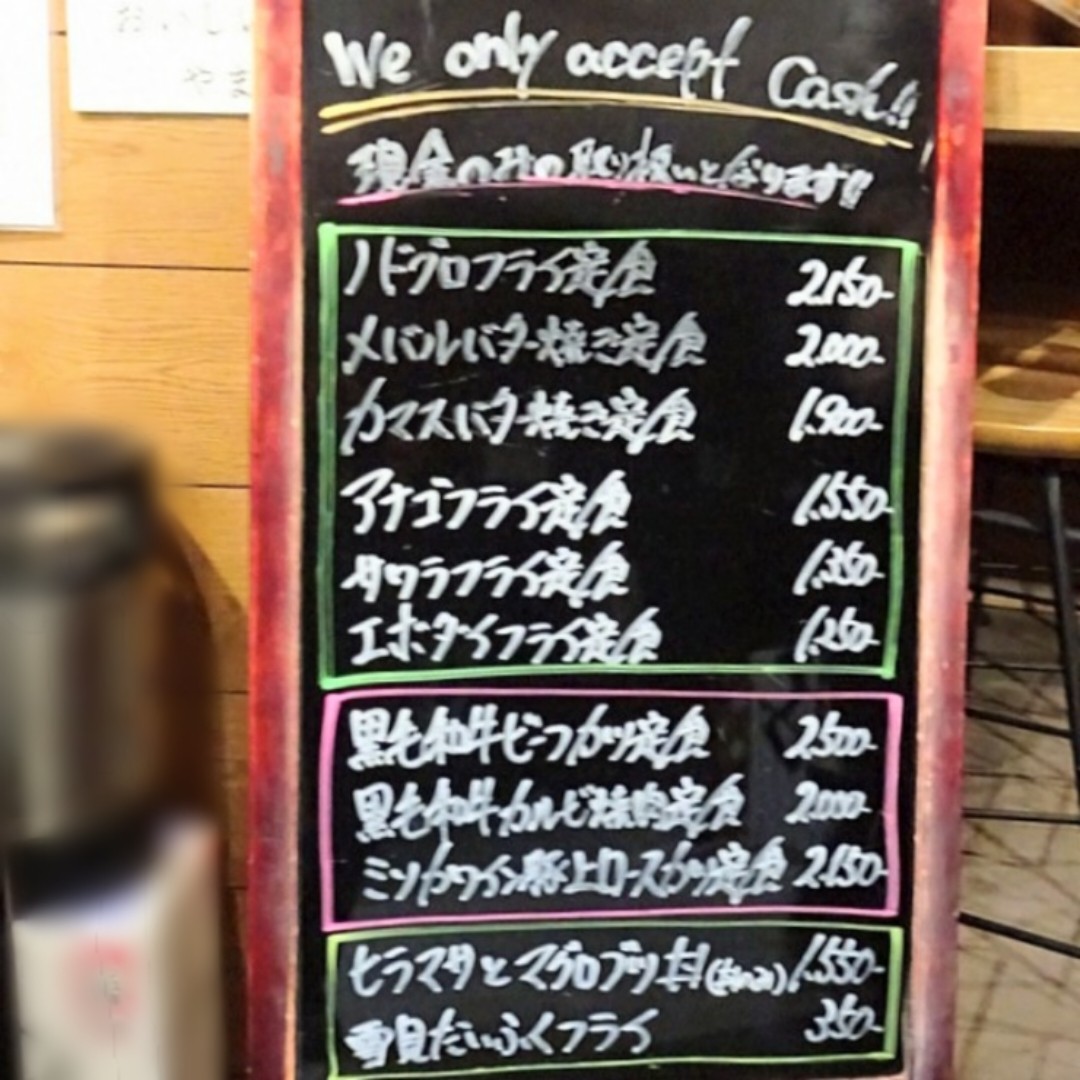 おいしい
やま
We only accept Cash!!
現金のみの取り扱いとなります!!
ノドグロフライ定食 2.150-
メバルバター焼き定食 2.000-
カマスバター焼き定食 1.900-
アナゴフライ定食 1.550-
タワラフライ定食 1.350-
エボダイフライ定食 1.250-
黒毛和牛ビーフカツ定食 2.500-
黒毛和牛カルビ焼肉定食 2.000-
ミツカワイン豚上ロースカツ定食 2.150-
ヒラマサとマグロブツ丼 1.550-
雪見だいふくフライ 350-